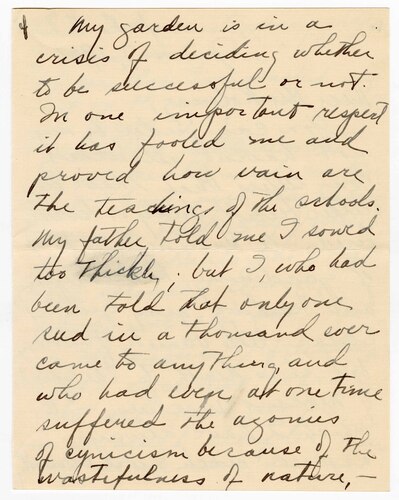 My garden is in a
crisis of deciding whether
to be successful or not.
In one important respect
it has fooled me and
proved how vain are
the teachings of the schools.
My father told me I sowed
too thickly; but I, who had
been told that only one
seed in a thousand ever
came to anything, and
who had even at one time
suffered the agonies
of cynicism because of the
wastefulness of nature, —